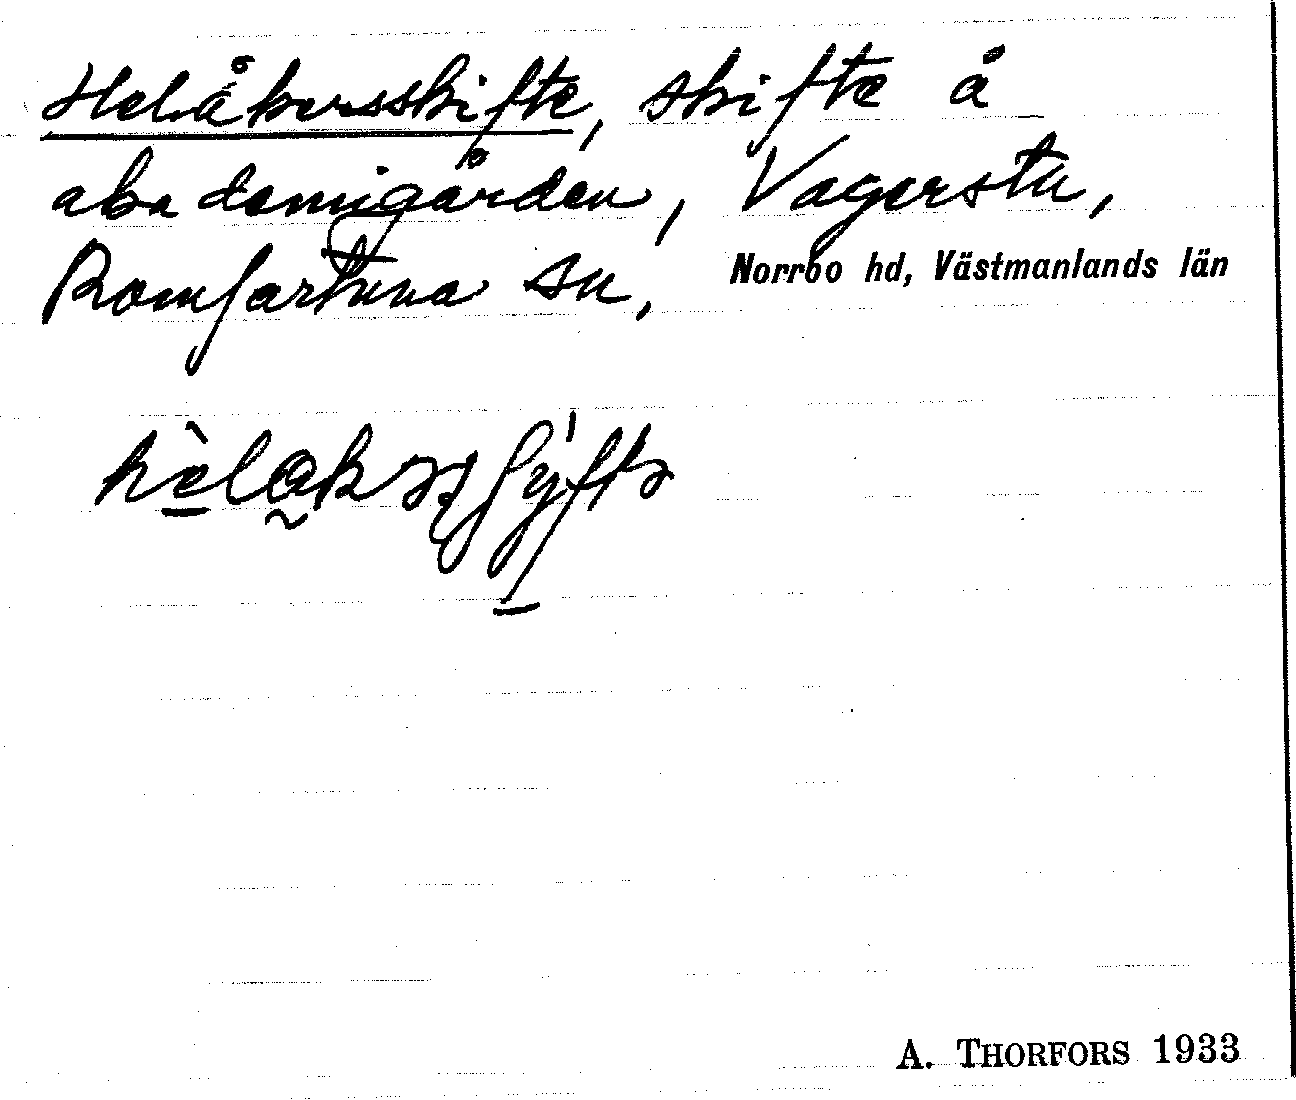 Helåkersskifte, skifte å
akademigården, Vagersta,
Romfartuna sn, Norrbo hd, Västmanlands län
A. THORFORS 1933